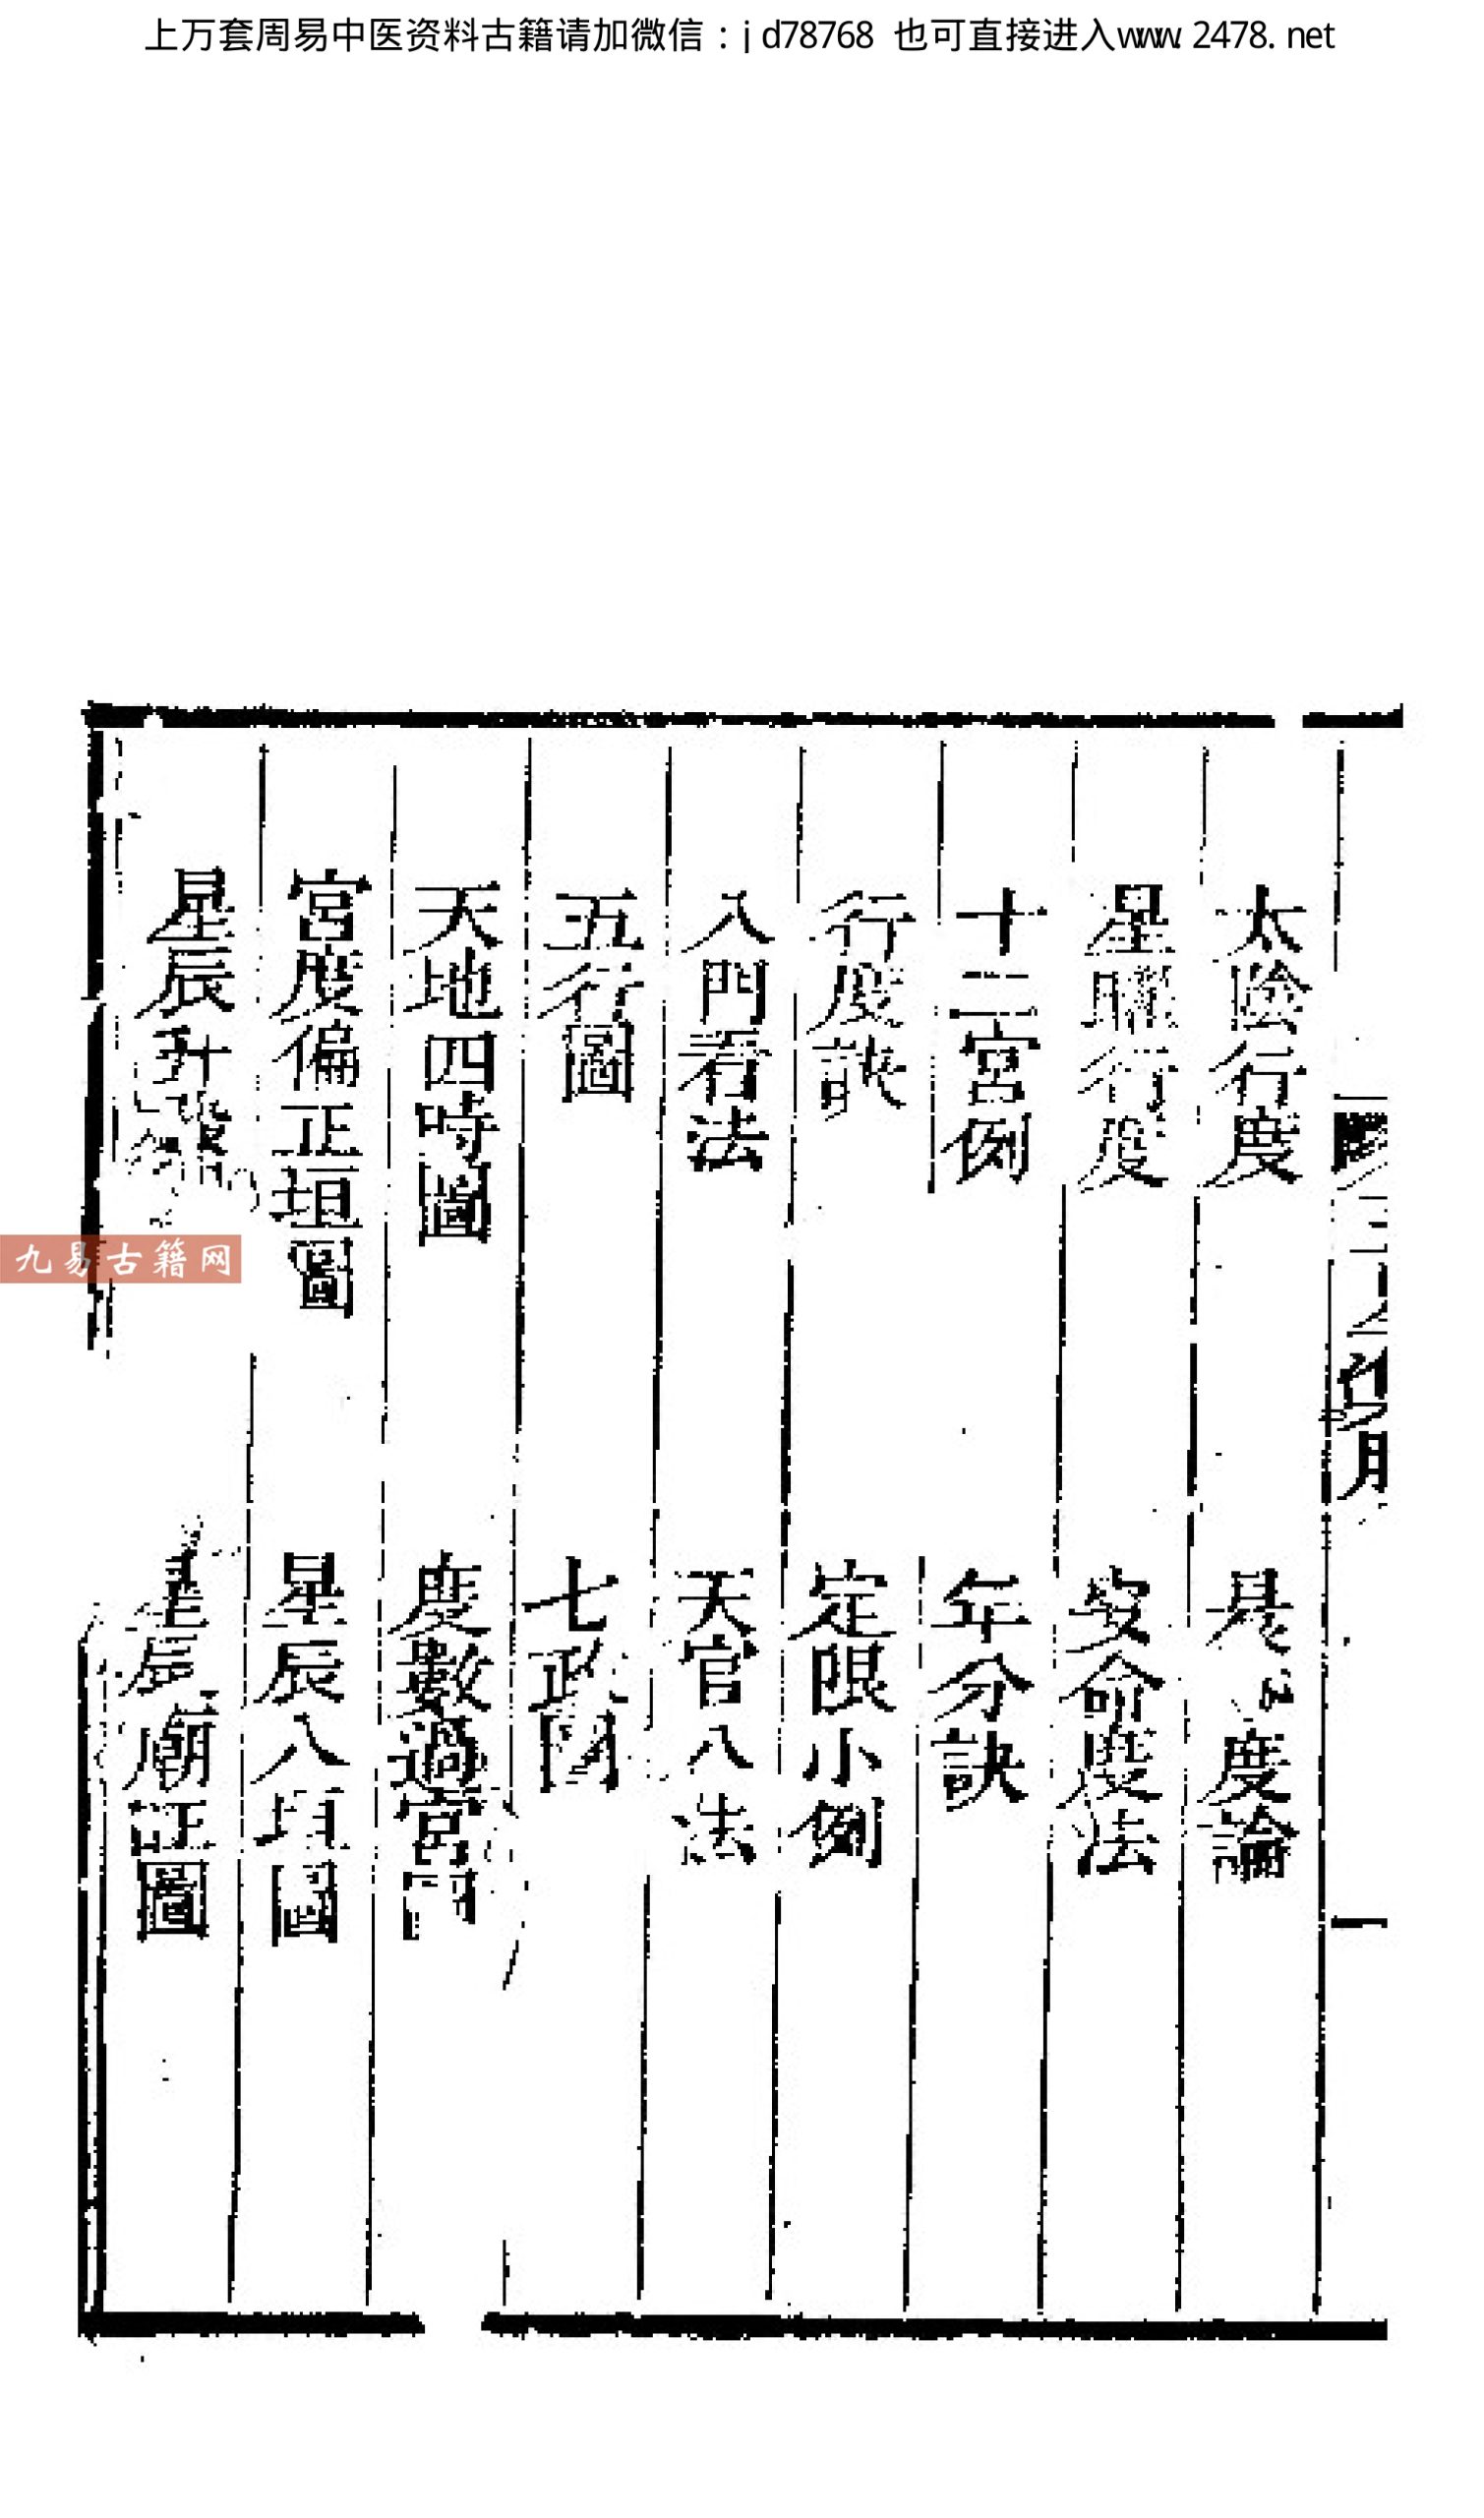 上万套周易中医资料古籍请加微信：jd78768 也可直接进入www.2478.net
太陰行度
度論
星曜行度
安命度法
十二宮例
年分訣
行度訣
定限小例
入門看法
天官八法
五行圖
七政圖
天地四時圖
度數過宮圖
宮度偏正垣圖
星辰八垣圖
星辰升殿
星辰廟旺圖
九易古籍网